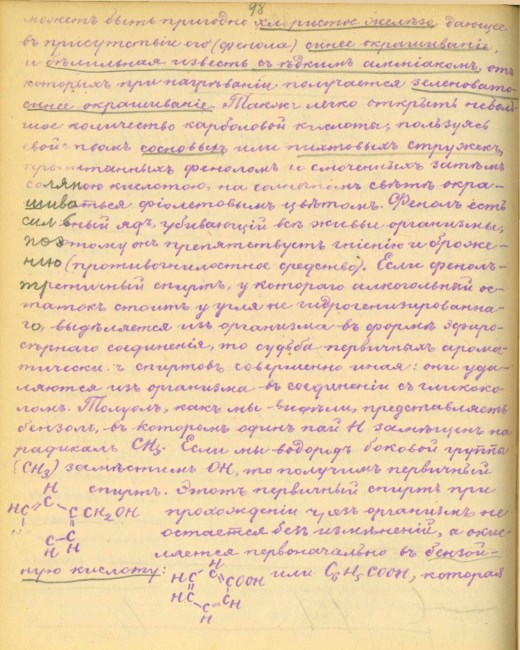 98
можетъ быть пригодно хлористое железо, дающее
въ присутствіи его (фенола) синее окрашиваніе,
и бѣлильная известь съ ѣдкимъ амміакомъ, отъ
которыхъ при нагрѣваніи получается зеленовато-
синее окрашиваніе. Также легко открыть неболь-
шое количество карболовой кислоты, пользуясь
свойствомъ сосновыхъ или пихтовыхъ стружекъ,
пропитанныхъ феноломъ и смоченныхъ затѣмъ
соляною кислотою, на солнечномъ свѣтѣ окра-
шиваться фіолетовымъ цвѣтомъ. Фенолъ есть
сильный ядъ, убивающій всѣ живые организмы,
поэтому онъ препятствуетъ гніенію и броже-
нію (противогнилостное средство). Если фенолъ-
третичный спиртъ, у котораго алкогольный ос-
татокъ стоитъ у угля не гидрогенизированна-
го, выдѣляется изъ организма въ формѣ эфиро-
сѣрнаго соединенія, то судьба первичныхъ арома-
тическихъ спиртовъ совершенно иная: они уда-
ляются изъ организма въ соединеніи съ гликоко-
ломъ. Толуолъ, какъ мы видѣли, представляетъ
бензолъ, въ которомъ одинъ пай H замѣщенъ на
радикалъ CH3. Если мы водородъ боковой группы
(CH3) замѣстимъ OH, то получимъ первичный
спиртъ. Этотъ первичный спиртъ при
прохожденіи чрезъ организмъ не
остается безъ измѣненій, а окис-
ляется первоначально въ бензой-
ную кислоту: или C6H5COOH, которая
H
H C C C CH2OH
C C
H H
H
H C C C COOH
H C C C H
H